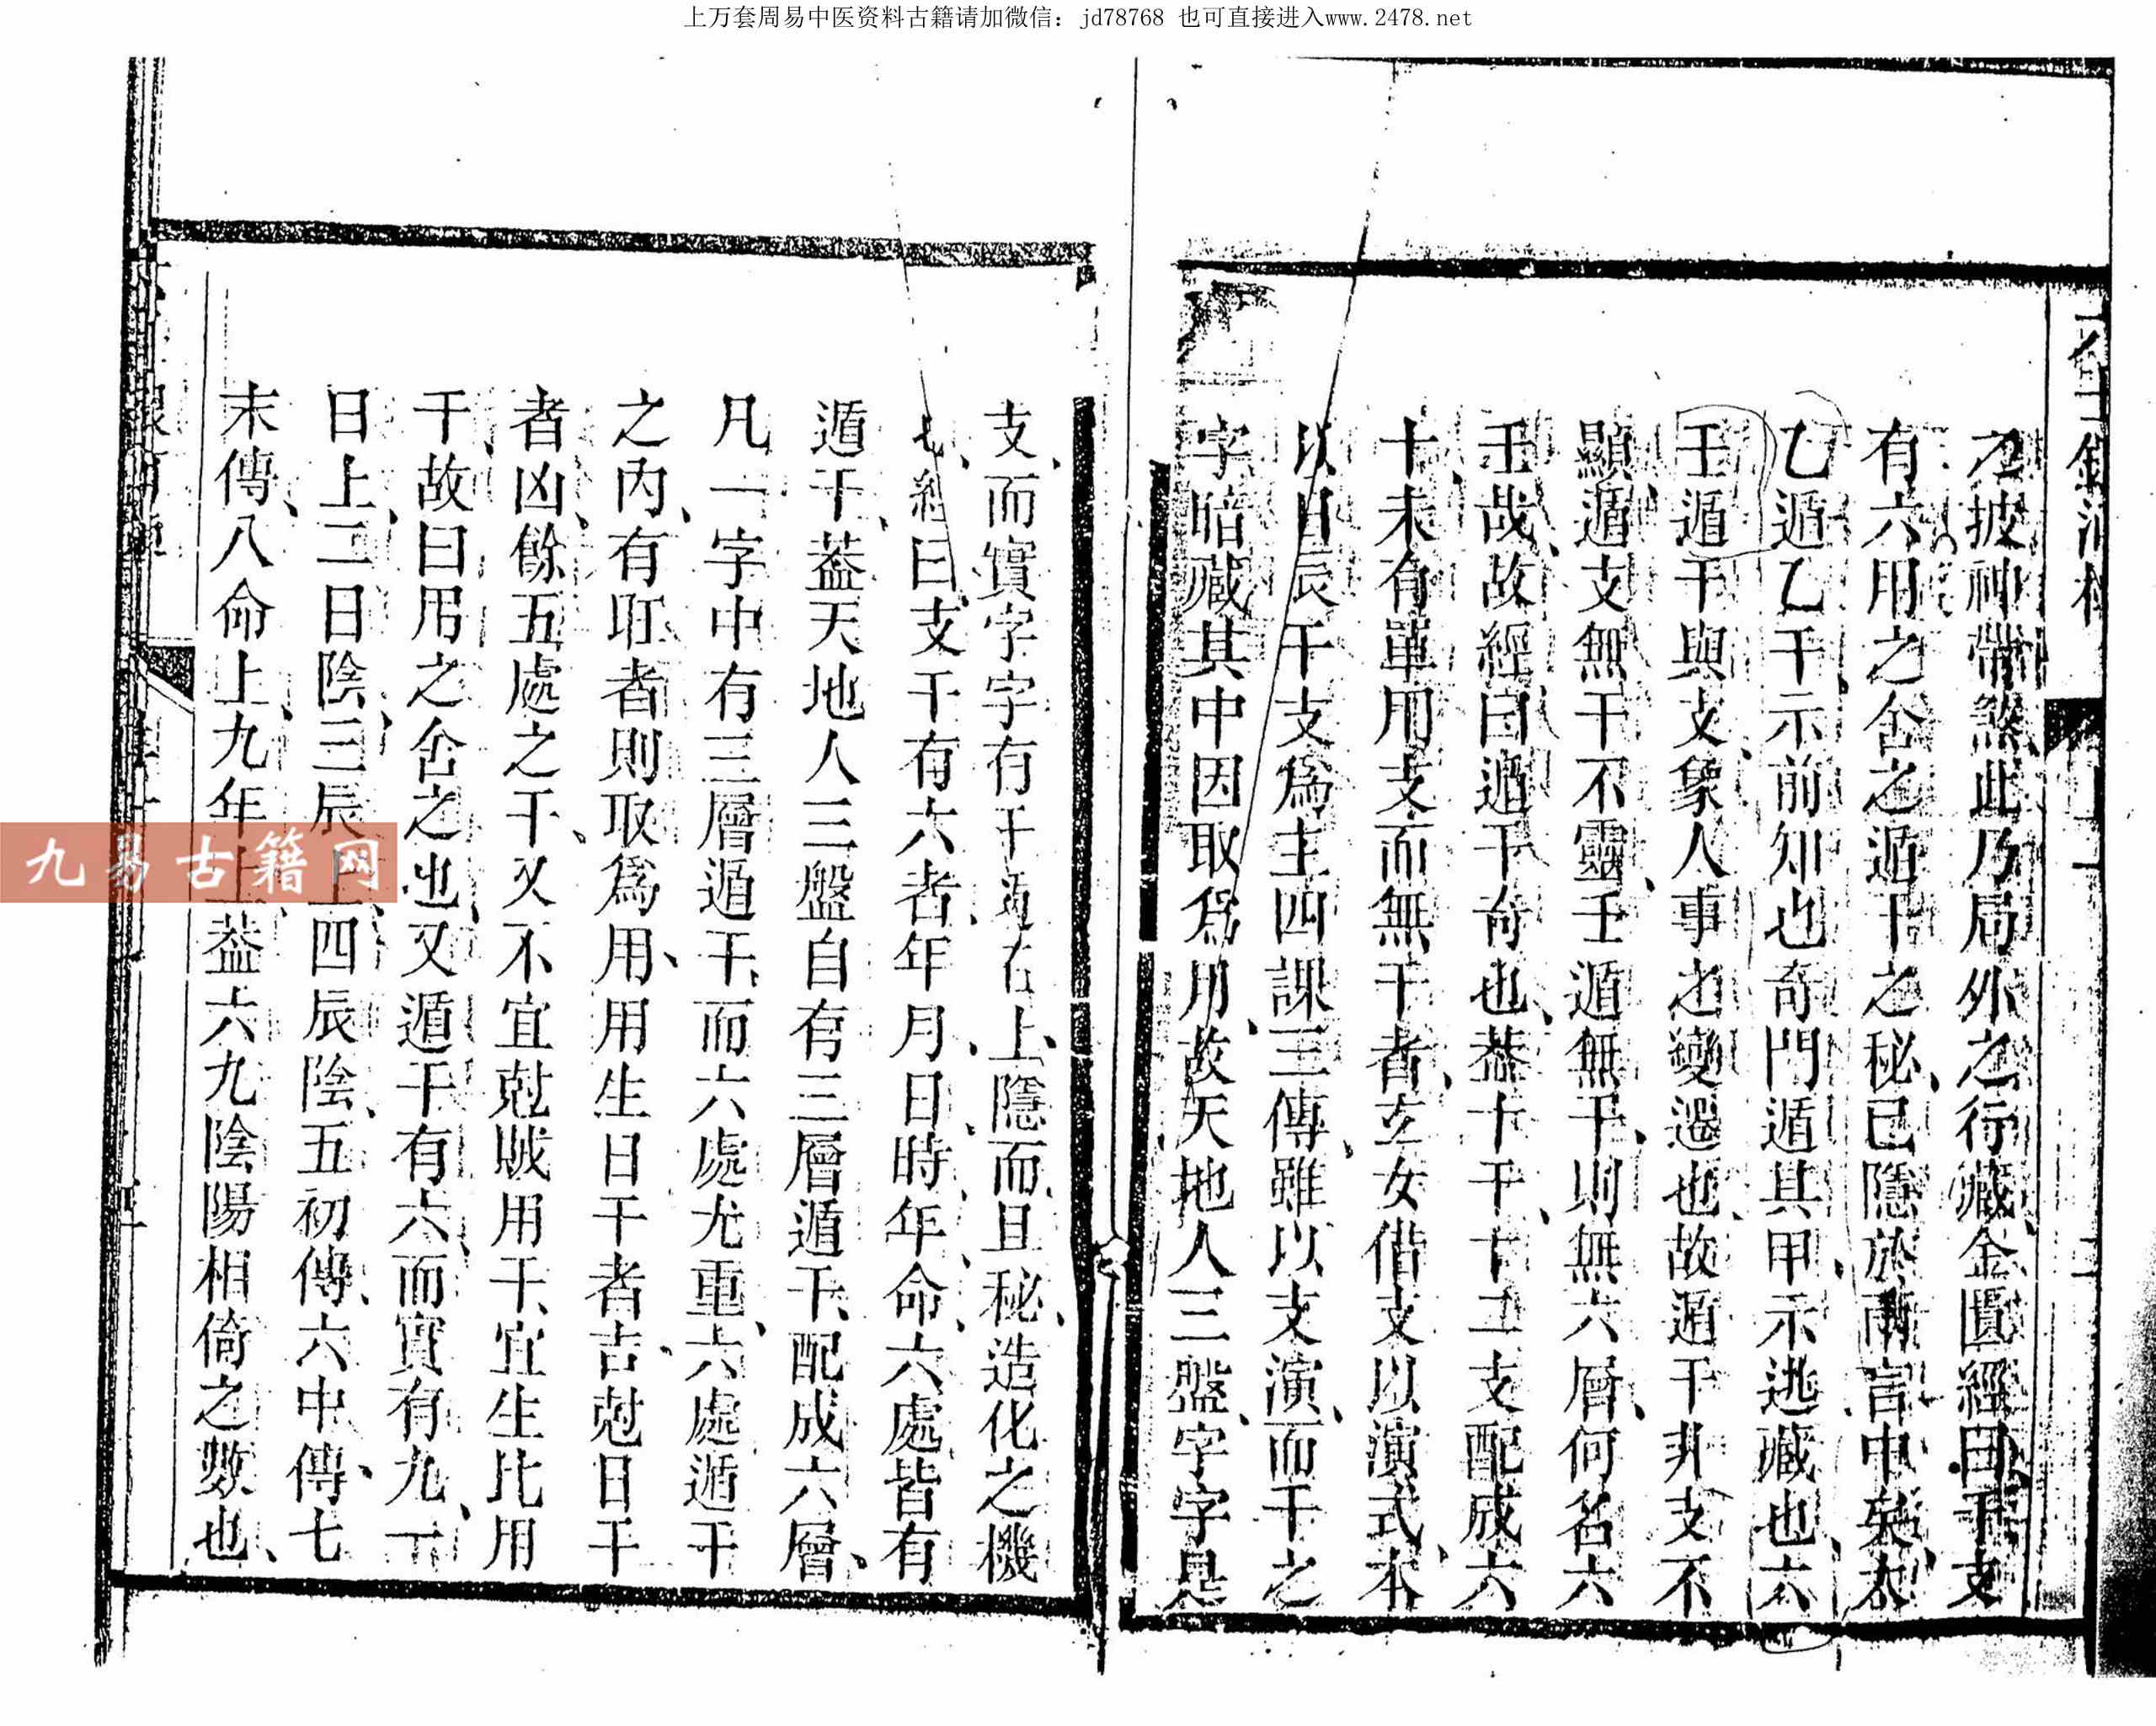 上万套周易中医资料古籍请加微信：jd78768 也可直接进入www.2478.net
披神帶煞此乃局外之行藏金匱經曰干支
有六用之舍之遁干之秘已隱於兩言中矣太
乙遁乙干示前知也奇門遁其甲示逃藏也六
壬遁干與支象人事之變遷也故遁干非支不
顯遁支無干不靈壬遁無干則無六層何名六
壬哉故經曰遁干奇也葢十干十二支配成六
十未有單用支而無干者玄女借支以演式本
以日辰干支爲主四課三傳雖以支演而干之
字暗藏其中因取爲用故天地人三盤字字是
支而實字字有干在上隱而且秘造化之機
也經曰支干有六者年月日時年命六處皆有
遁干葢天地人三盤自有三層遁干配成六層
凡一字中有三層遁干而六處尤重六處遁干
之內有䏏者則取爲用用生日干者吉尅日干
者凶餘五處之干又不宜尅賊用干宜生比用
干故曰用之舍之也又遁干有六而實有九一
日上二日陰三辰上四辰陰五初傳六中傳七
末傳八命上九年上葢六九陰陽相倚之數也
九易古籍网